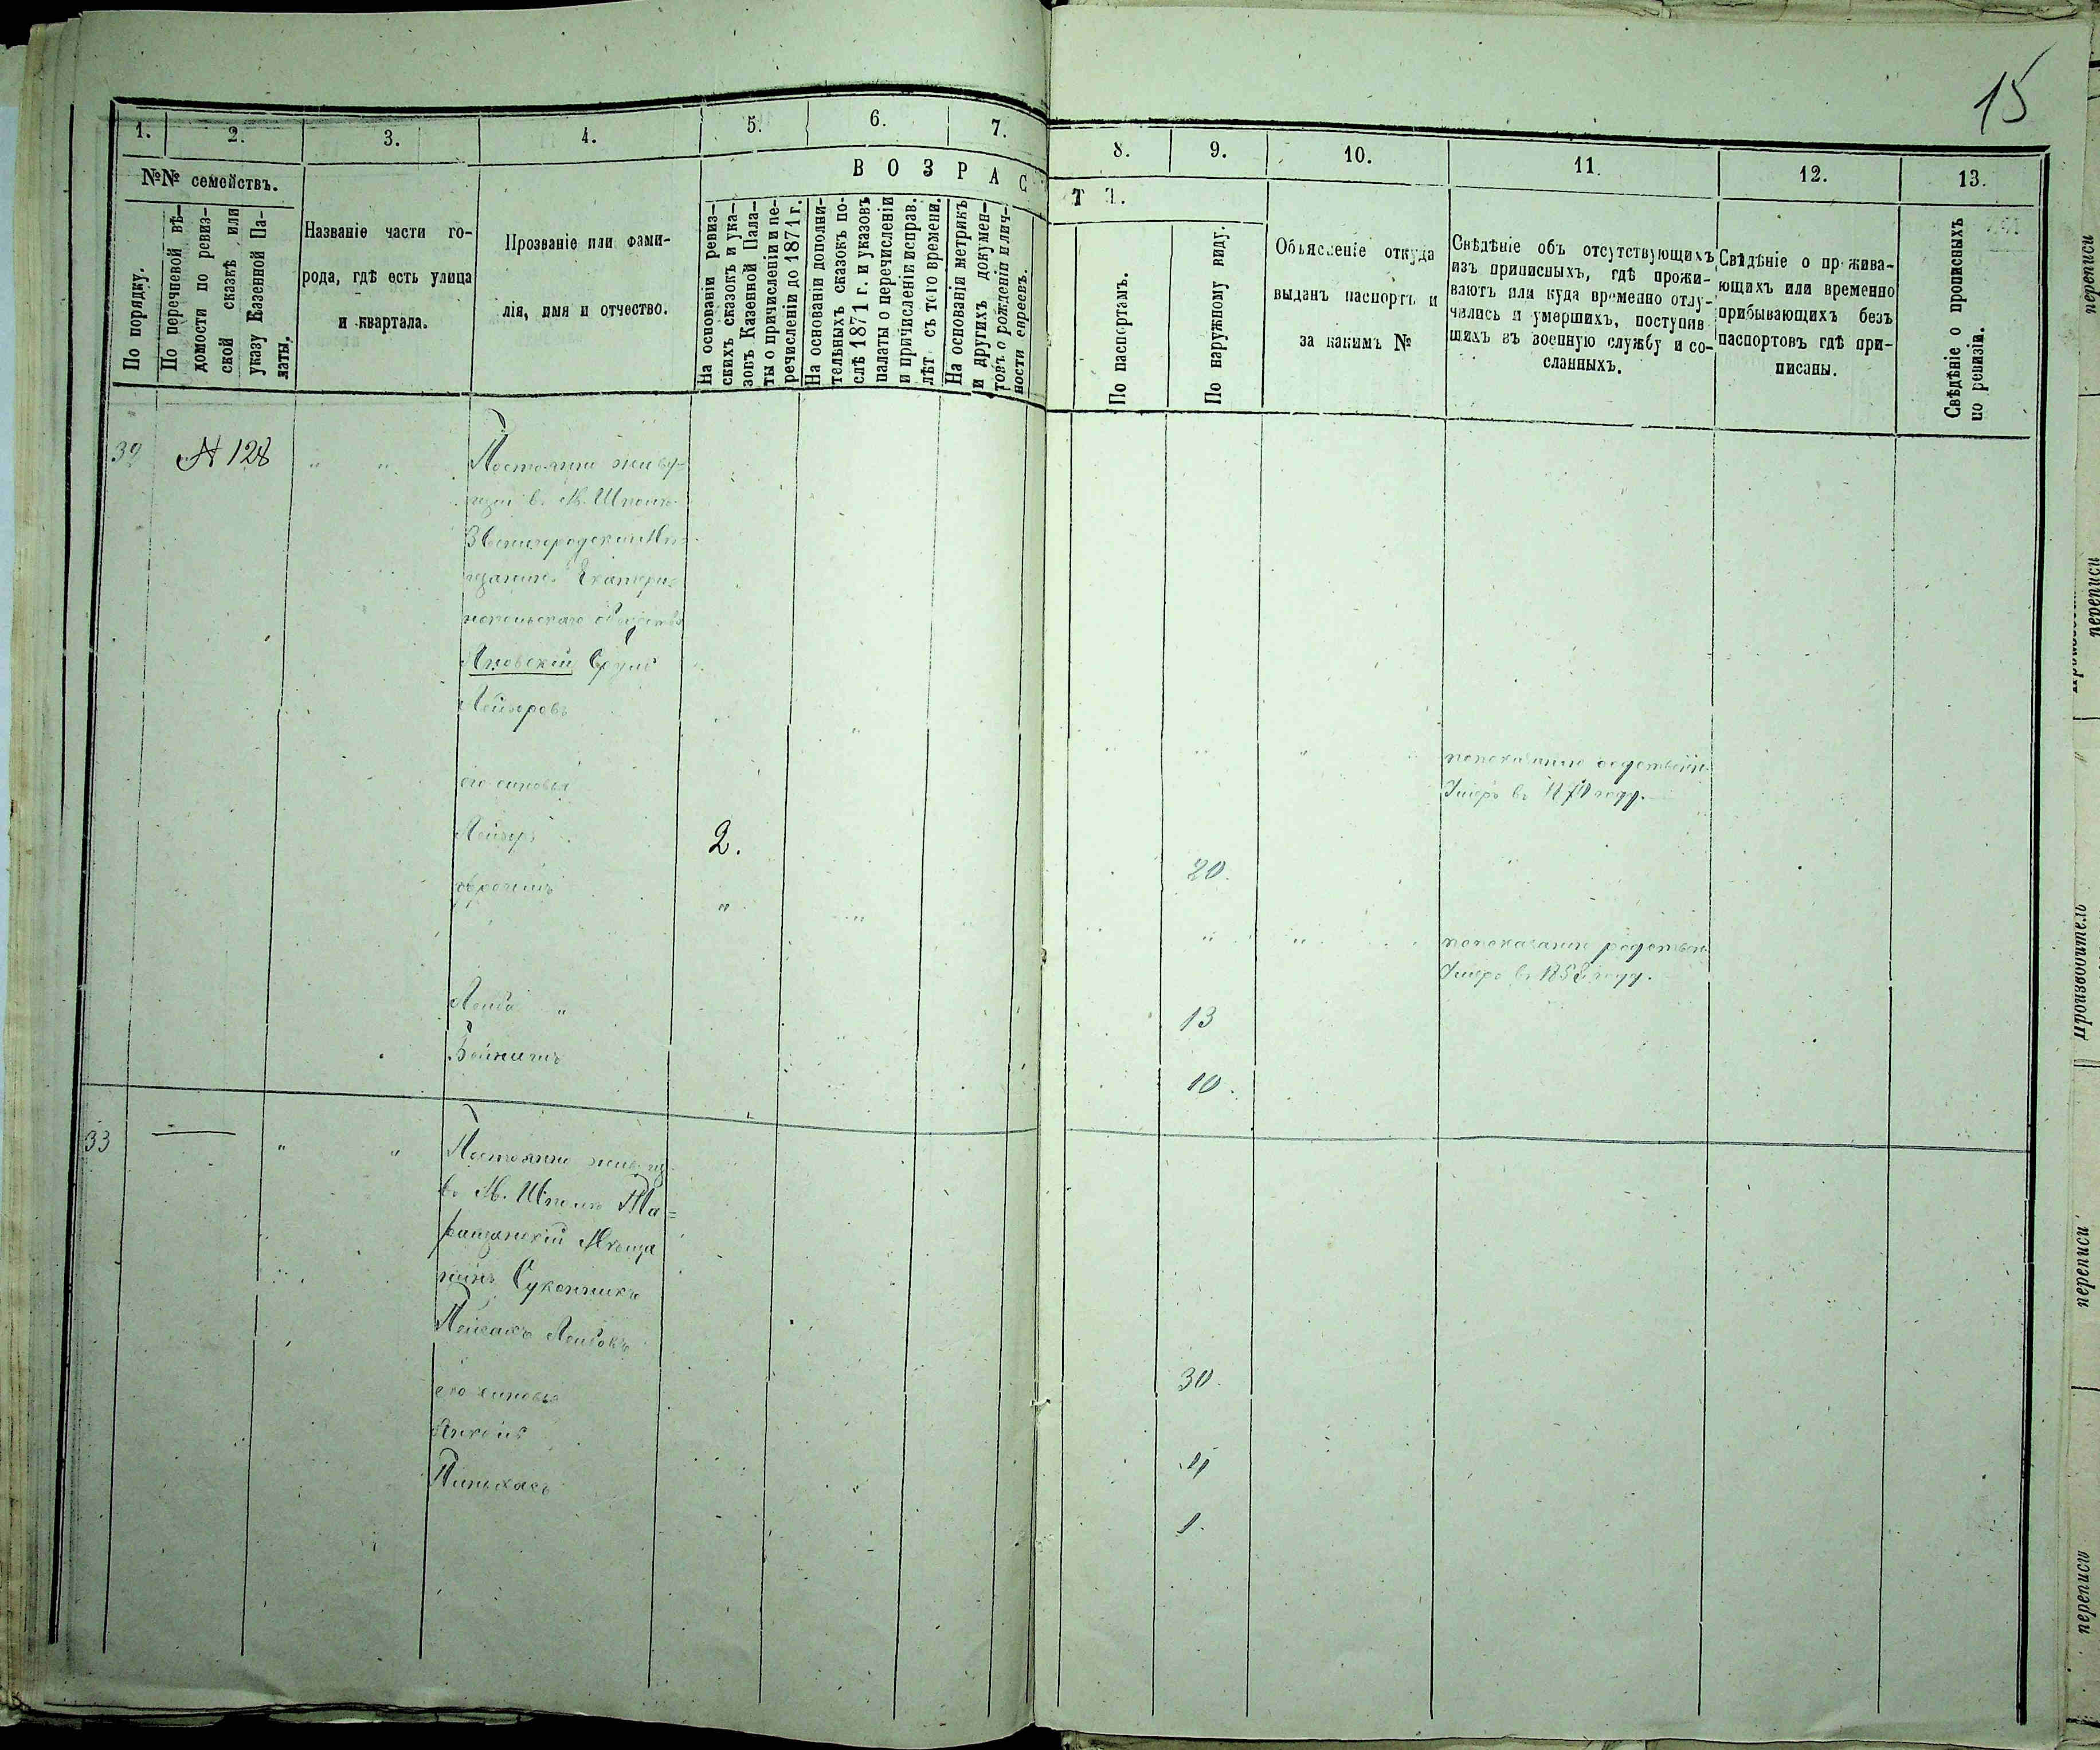 15
1.
2.
3.
4.
5.
6.
7.
8.
9.
10.
11.
12.
13.
№№ семействъ.
По порядку.
По перечневой вѣ-
домости по ревиз-
ской сказкѣ или
указу Казенной Па-
латы.
Названіе части го-
рода, гдѣ есть улица
и квартала.
Прозваніе или фами-
лія, имя и отчество.
ВОЗРАС
ТЪ.
На основаніи ревиз-
скихъ сказокъ и ука-
зовъ Казенной Пала-
ты о причисленіи и пе-
речисленіи до 1871 г.
На основаніи дополни-
тельныхъ сказокъ по-
слѣ 1871 г. и указовъ
палаты о перечисленіи
и причисленіи исправ.
лѣт съ того времени.
На основаніи метрикъ
и другихъ докумен-
товъ о рожденіи и лич-
ности евреевъ.
По паспортамъ.
По наружному виду.
Объясненіе откуда
выданъ паспортъ и
за какимъ №
Свѣдѣніе объ отсутствующихъ
изъ приписныхъ, гдѣ прожи-
ваютъ или куда временно отлу-
чились и умершихъ, поступив
шихъ въ военную службу и со-
сланныхъ.
Свѣдѣніе о прожива-
ющихъ или временно
прибывающихъ безъ
паспортовъ гдѣ при-
писаны.
Свѣдѣніе о прописныхъ
по ревизіи.
32 № 128 " " Постоянно живу-
щій в. М. Шполѣ
Звенигородскій Мѣ-
щанинъ Екатери-
нопольскаго общества
Яновскій Сруль
Лейзеровъ
" " " попоказанію родственн.
Умеръ въ 1871 году.
его сыновья
Лейзеръ 2. 20.
" " " попоказанію родствен
Умеръ въ 1858 году.
Лейба " 13
10.
33 — " " Постоянно живущ
въ М. Шполѣ Та-
ращанскій Мѣща
нинъ Суконникъ
Пейсахъ Лейбовъ
30.
его сыновья
Янкель 4
Пинькасъ 1.
переписи
переписи
Производитель
переписи
переписи